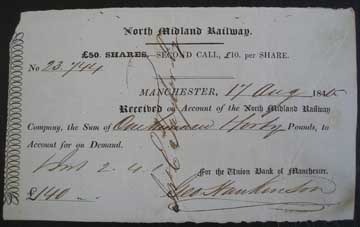 North Midland Railway.
£50. SHARES,—SECOND CALL, £10. per SHARE.
No 23.744
MANCHESTER, 17 Aug 184
Received on Account of the North Midland Railway
Company, the Sum of One hundred Forty Pounds, to
Account for on Demand.
For the Union Bank of Manchester.
£140 Geo Hankinson